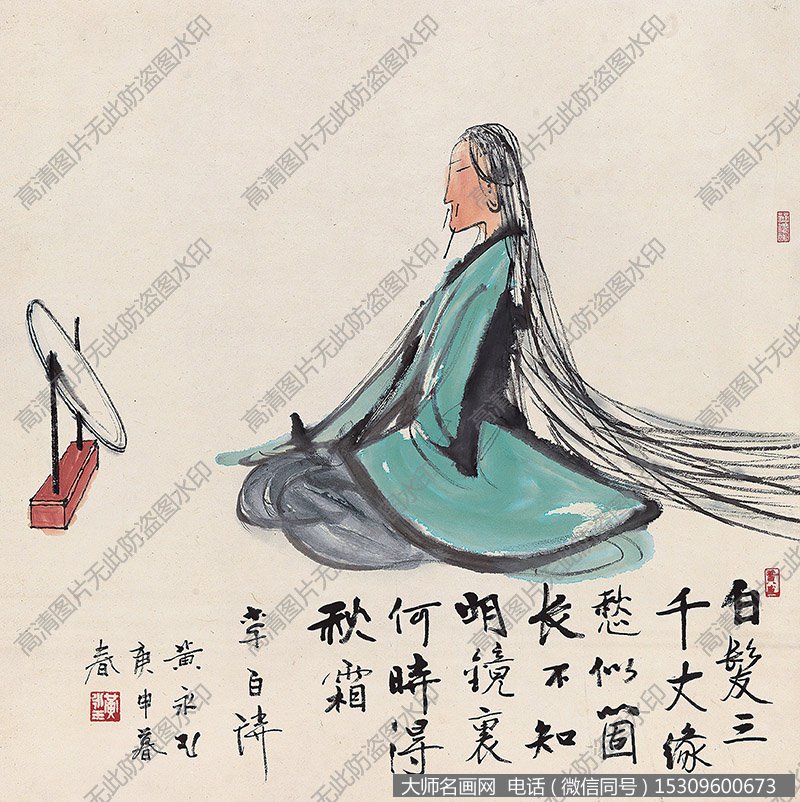 白髮三
千丈缘
愁似箇
长不知
明鏡裏
何時得
秋霜
李白詩
黄永玉
庚申暮
春
高清图片无此防盗图水印
大师名画网 电话（微信同号）15309600673